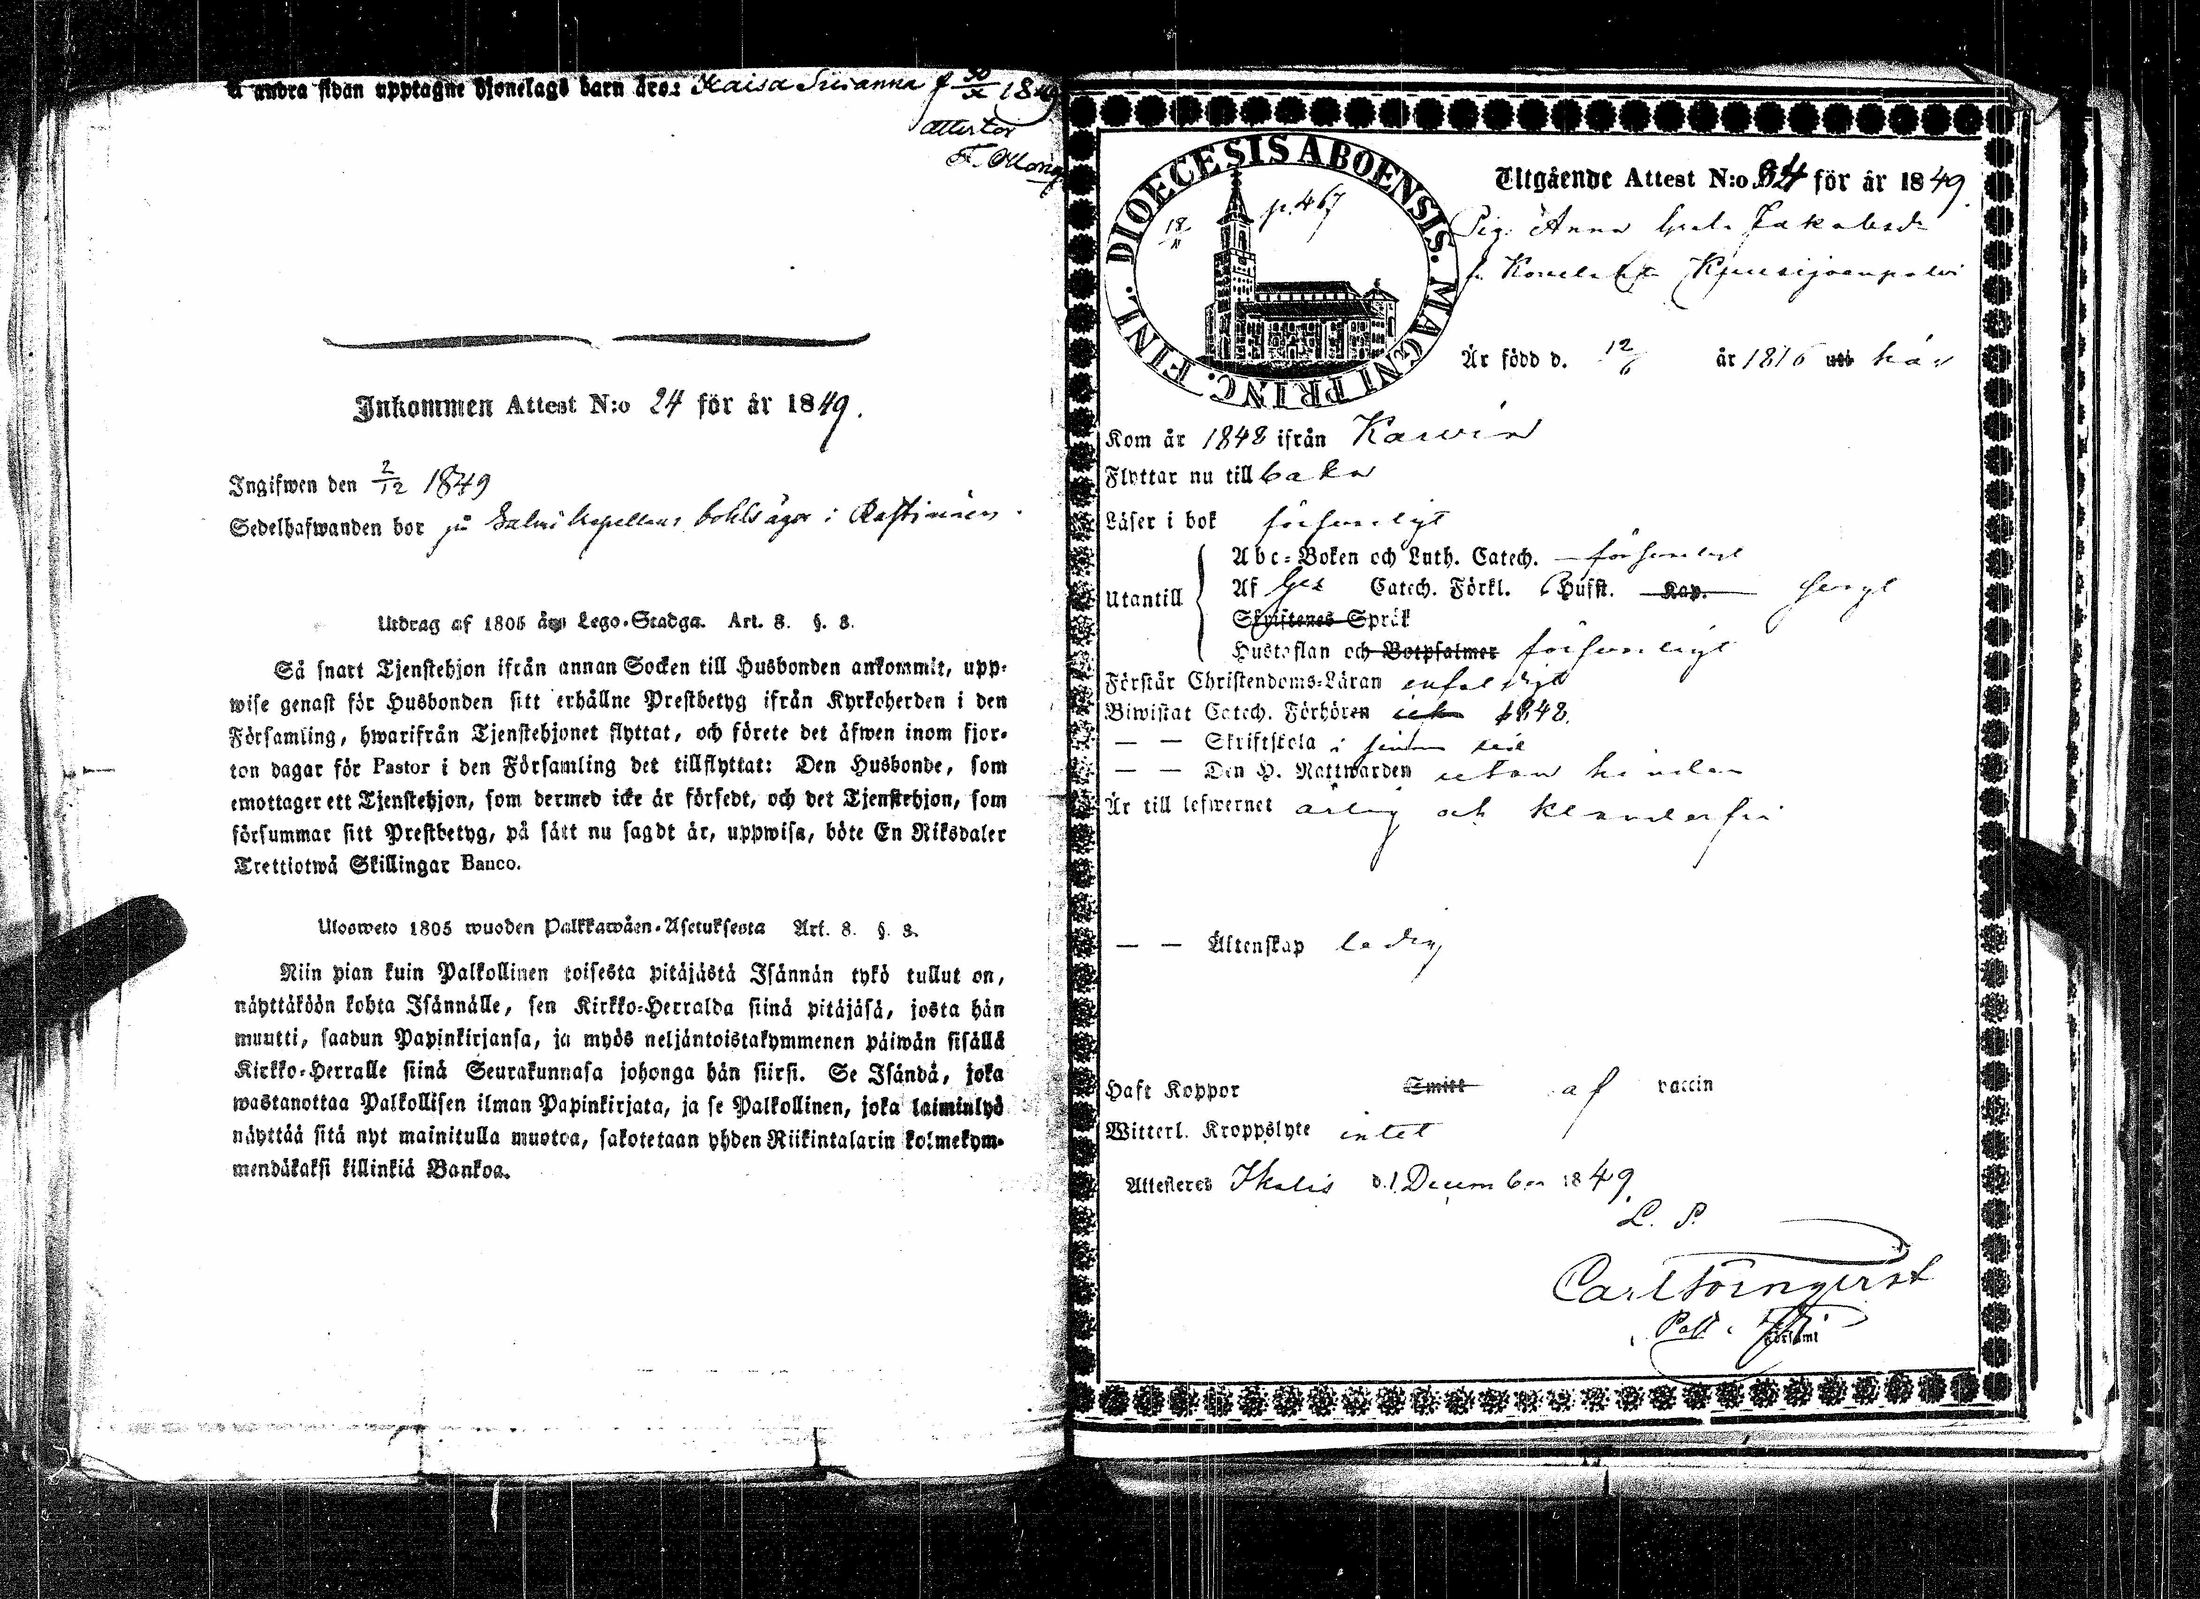 å andra sidan upptagne hjonelags barn äro: Kaisa Susanna f 30/x 1849
attestar
Inkommen Attest N:o 24 för år 1849.
Ingifwen den 2/12 1849
Sedelhafwanden bor på
Utdrag af 1805 års Lego-Stadga. Art. 8. §. 8.
Så snart Tjenstehjon ifrån annan Socken till Husbonden ankommit, upp-
wise genast för Husbonden sitt erhållne Prestbetyg ifrån Kyrkoherden i den
Församling, hwarifrån Tjenstehjonet flyttat, och förete det äfwen inom fjor-
ton dagar för Pastor i den Församling det tillflyttat: Den Husbonde, som
emottager ett Tjenstehjon, som dermed icke är försedt, och det Tjenstehjon, som
försummar sitt Prestbetyg, på sätt nu sagdt är, uppwisa, böte En Riksdaler
Trettiotwå Skillingar Banco.
Ulosweto 1805 wuoden Palkkawäen-Asetuksesta Art. 8. §. 8.
Niin pian kuin Palkollinen toisesta pitäjästä Isännän tykö tullut on,
näyttäköön kohta Isännälle, sen Kirkko-Herralda siinä pitäjäsä, josta hän
muutti, saadun Papinkirjansa, ja myös neljäntoistakymmenen päiwän sisällä
Kirkko-Herralle siinä Seurakunnasa johonga hän siirsi. Se Isändä, joka
wastanottaa Palkollisen ilman Papinkirjata, ja se Palkollinen, joka laiminlyö
näyttää sitä nyt mainitulla muotoa, sakotetaan yhden Riikintalarin kolmekym-
mendäkaksi killinkiä Bankoa.
DIOECESIS ABOENSIS. MAGNI PRINC. FINL.
p. 467
Utgående Attest N:o 84 för år 1849.
Pig. Anna Greta Jakobsd:r
Är född d. 12/6 år 1816 uti här
Kom år 1848 ifrån Karvia
Flyttar nu till baka
Läser i bok försvarligt
Utantill
Abc-Boken och Luth. Catech. försvarligt
Af Catech. Förkl. Hufst. Kap.
Skriftenes Språk
Hustaflan och Botpsalmer försvarligt
Förstår Christendoms-Läran enfaldigt
Biwistat Catech. Förhören 1848.
— — Skriftskola i sinom tid
— — Den H. Nattwarden utan hinder
Är till lefwernet ärlig och klanderfri
— — Äktenskap ledig
Haft Koppor Smitt af vaccin
Witterl. Kroppslyte intet
Attesteres Ikalis d. 1 December 1849.
L. S.
Carl Törnqvist
Församl